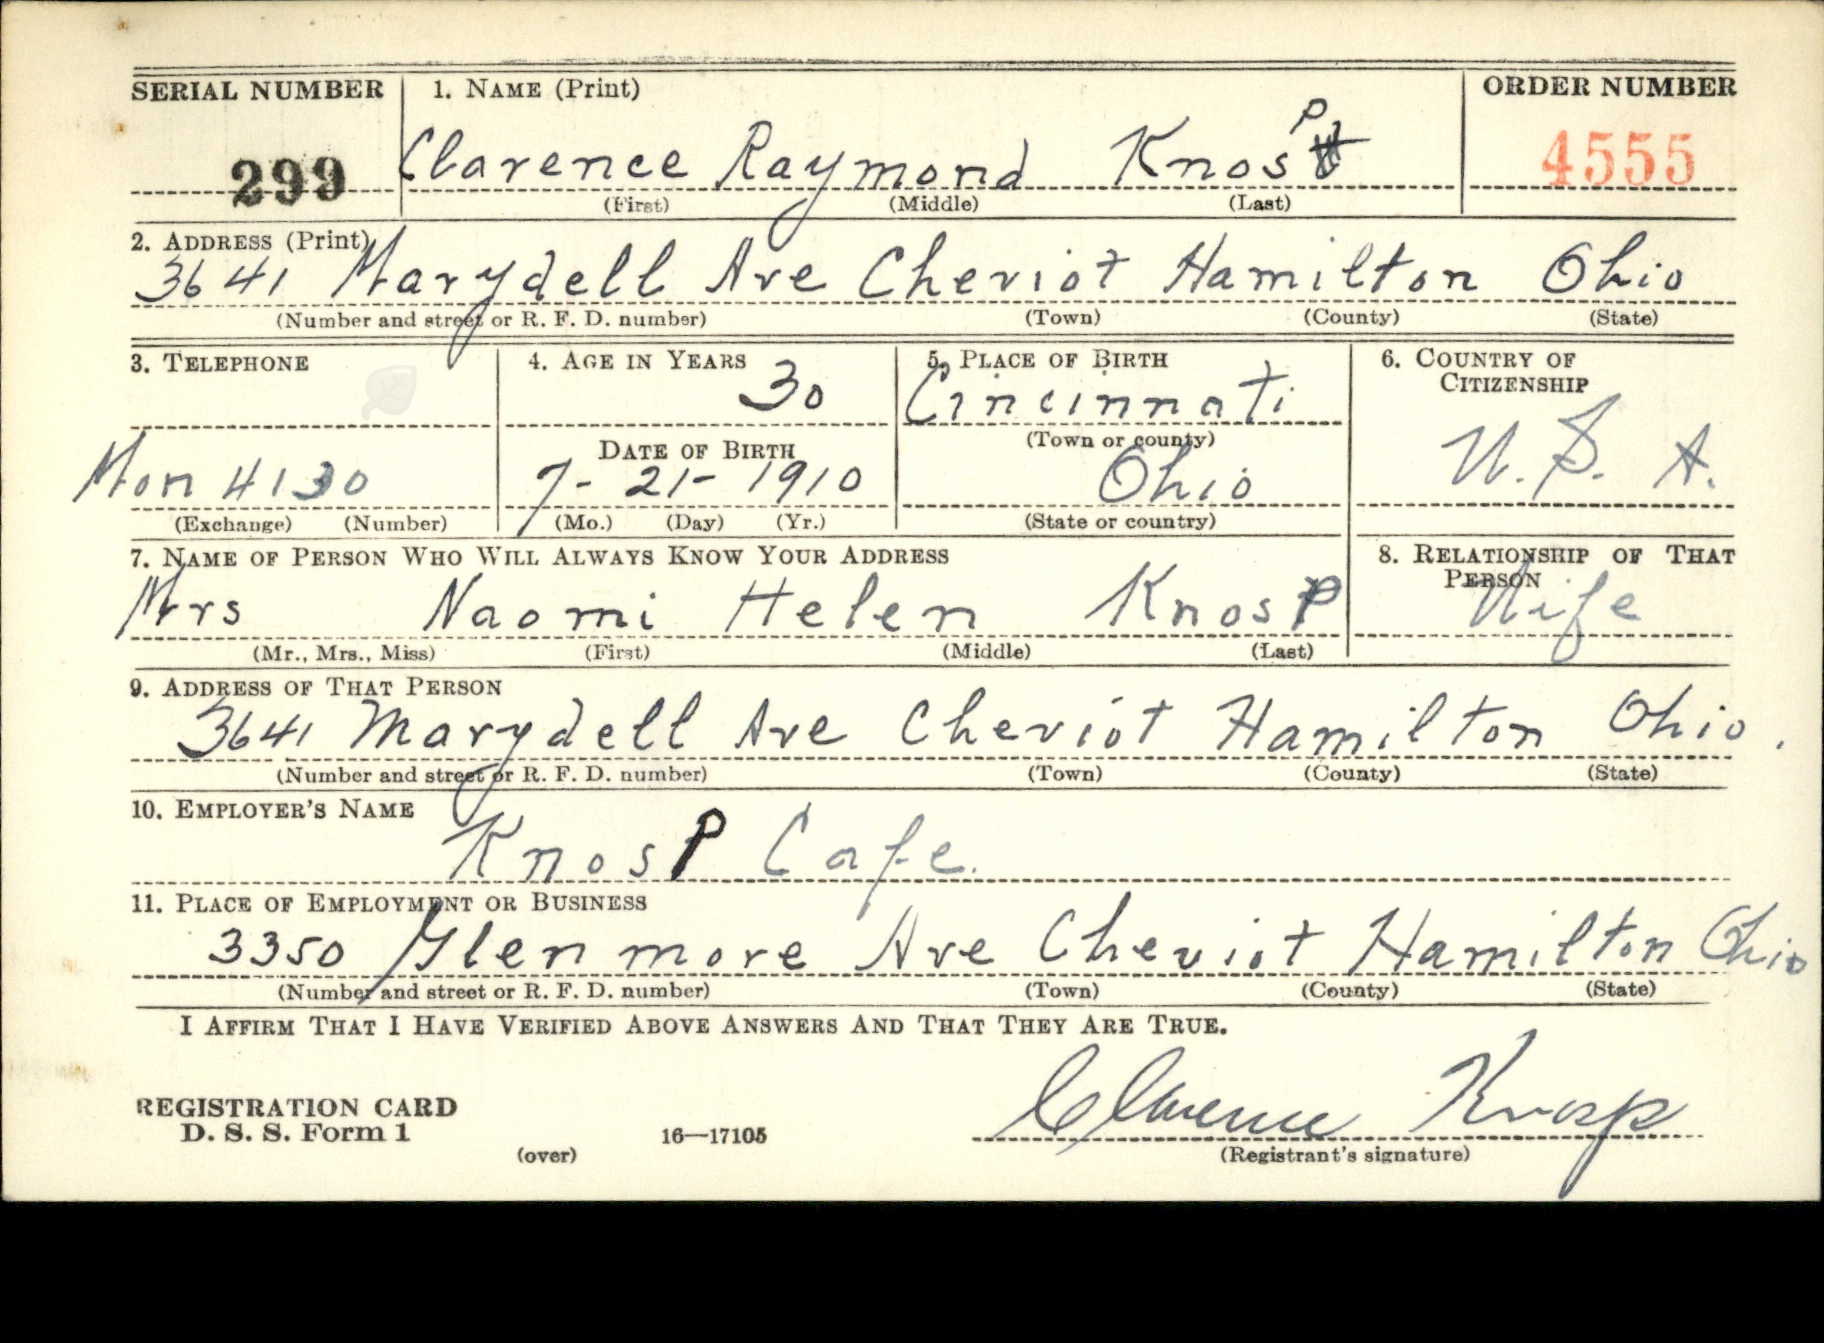 SERIAL NUMBER 1. NAME (Print) ORDER NUMBER
299 Clarence Raymond Knosp 4555
(First) (Middle) (Last)
2. ADDRESS (Print)
3641 Marydell Ave Cheviot Hamilton Ohio
(Number and street or R. F. D. number) (Town) (County) (State)
3. TELEPHONE 4. AGE IN YEARS 5. PLACE OF BIRTH 6. COUNTRY OF
CITIZENSHIP
30 Cincinnati
DATE OF BIRTH (Town or county)
Mon 4130 7-21-1910 Ohio U.S.A.
(Exchange) (Number) (Mo.) (Day) (Yr.) (State or country)
7. NAME OF PERSON WHO WILL ALWAYS KNOW YOUR ADDRESS 8. RELATIONSHIP OF THAT
PERSON
Mrs Naomi Helen Knosp Wife
(Mr., Mrs., Miss) (First) (Middle) (Last)
9. ADDRESS OF THAT PERSON
3641 Marydell Ave Cheviot Hamilton Ohio.
(Number and street or R. F. D. number) (Town) (County) (State)
10. EMPLOYER'S NAME
KnosP Cafe.
11. PLACE OF EMPLOYMENT OR BUSINESS
3350 Glenmore Ave Cheviot Hamilton Ohio
(Number and street or R. F. D. number) (Town) (County) (State)
I AFFIRM THAT I HAVE VERIFIED ABOVE ANSWERS AND THAT THEY ARE TRUE.
Clarence Knosp
REGISTRATION CARD
D. S. S. Form 1 16—17105
(over) (Registrant's signature)